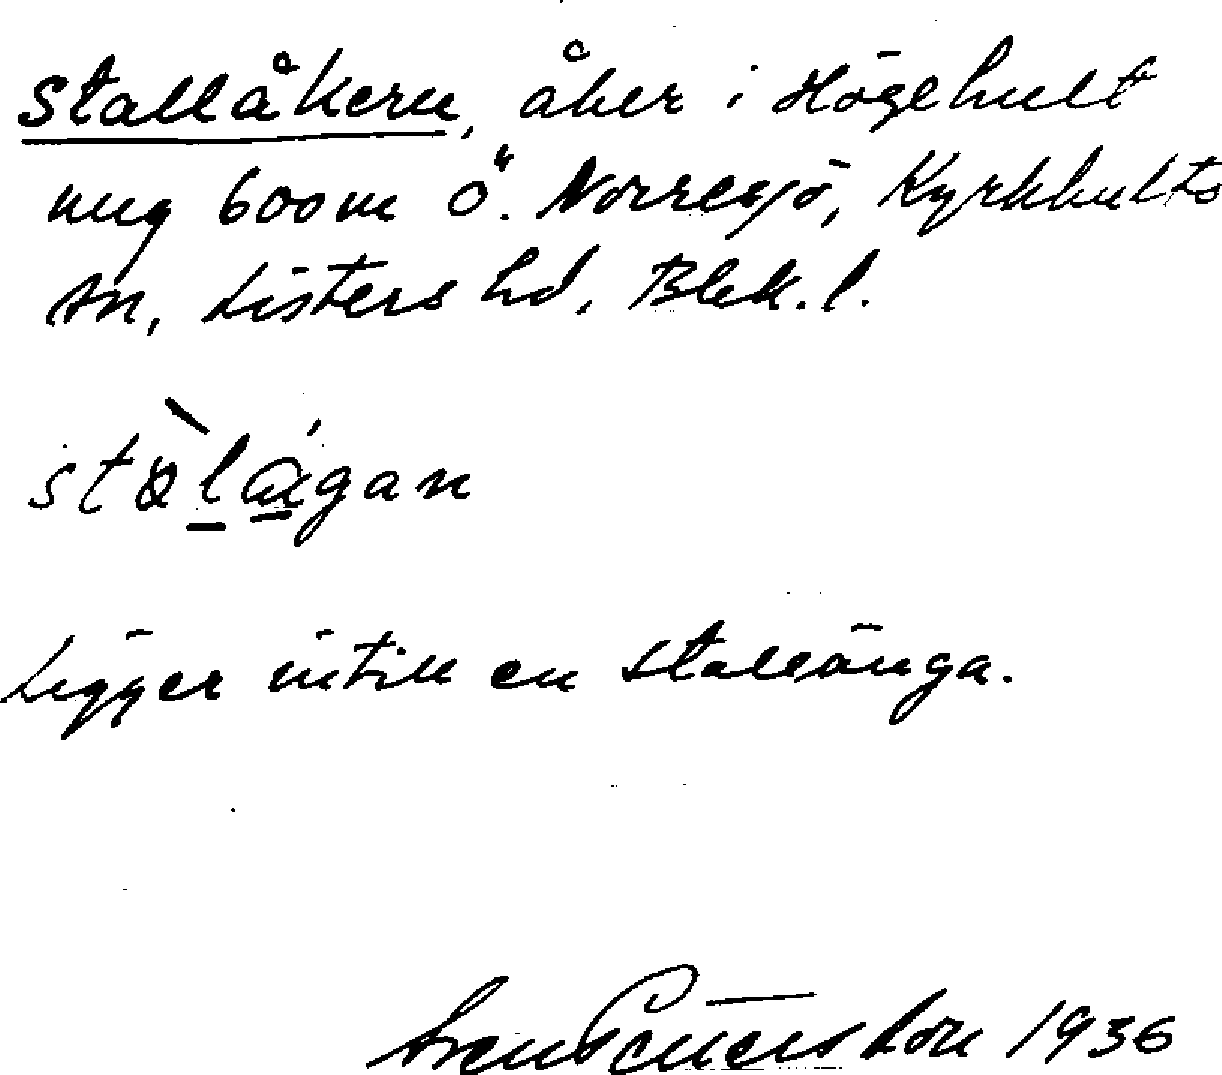 Stallåkern, åker i Högehult
ung 600 m Ö. Norresjö, Kyrkhults
sn, Listers hd, Blek. l.
stàlágan
Ligger intill en stallänga.
Sven Pettersson 1936